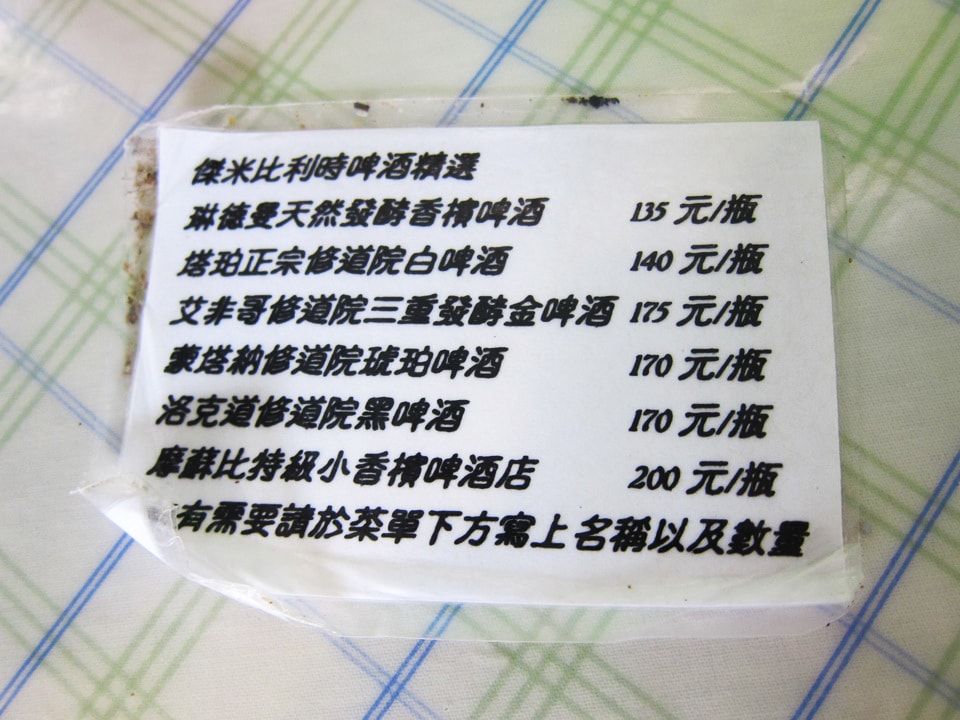 傑米比利時啤酒精選
琳德曼天然發酵香檳啤酒 135 元/瓶
塔珀正宗修道院白啤酒 140 元/瓶
艾非哥修道院三重發酵金啤酒 175 元/瓶
蒙塔納修道院琥珀啤酒 170 元/瓶
洛克道修道院黑啤酒 170 元/瓶
摩蘇比特級小香檳啤酒店 200 元/瓶
有需要請於菜單下方寫上名稱以及數量